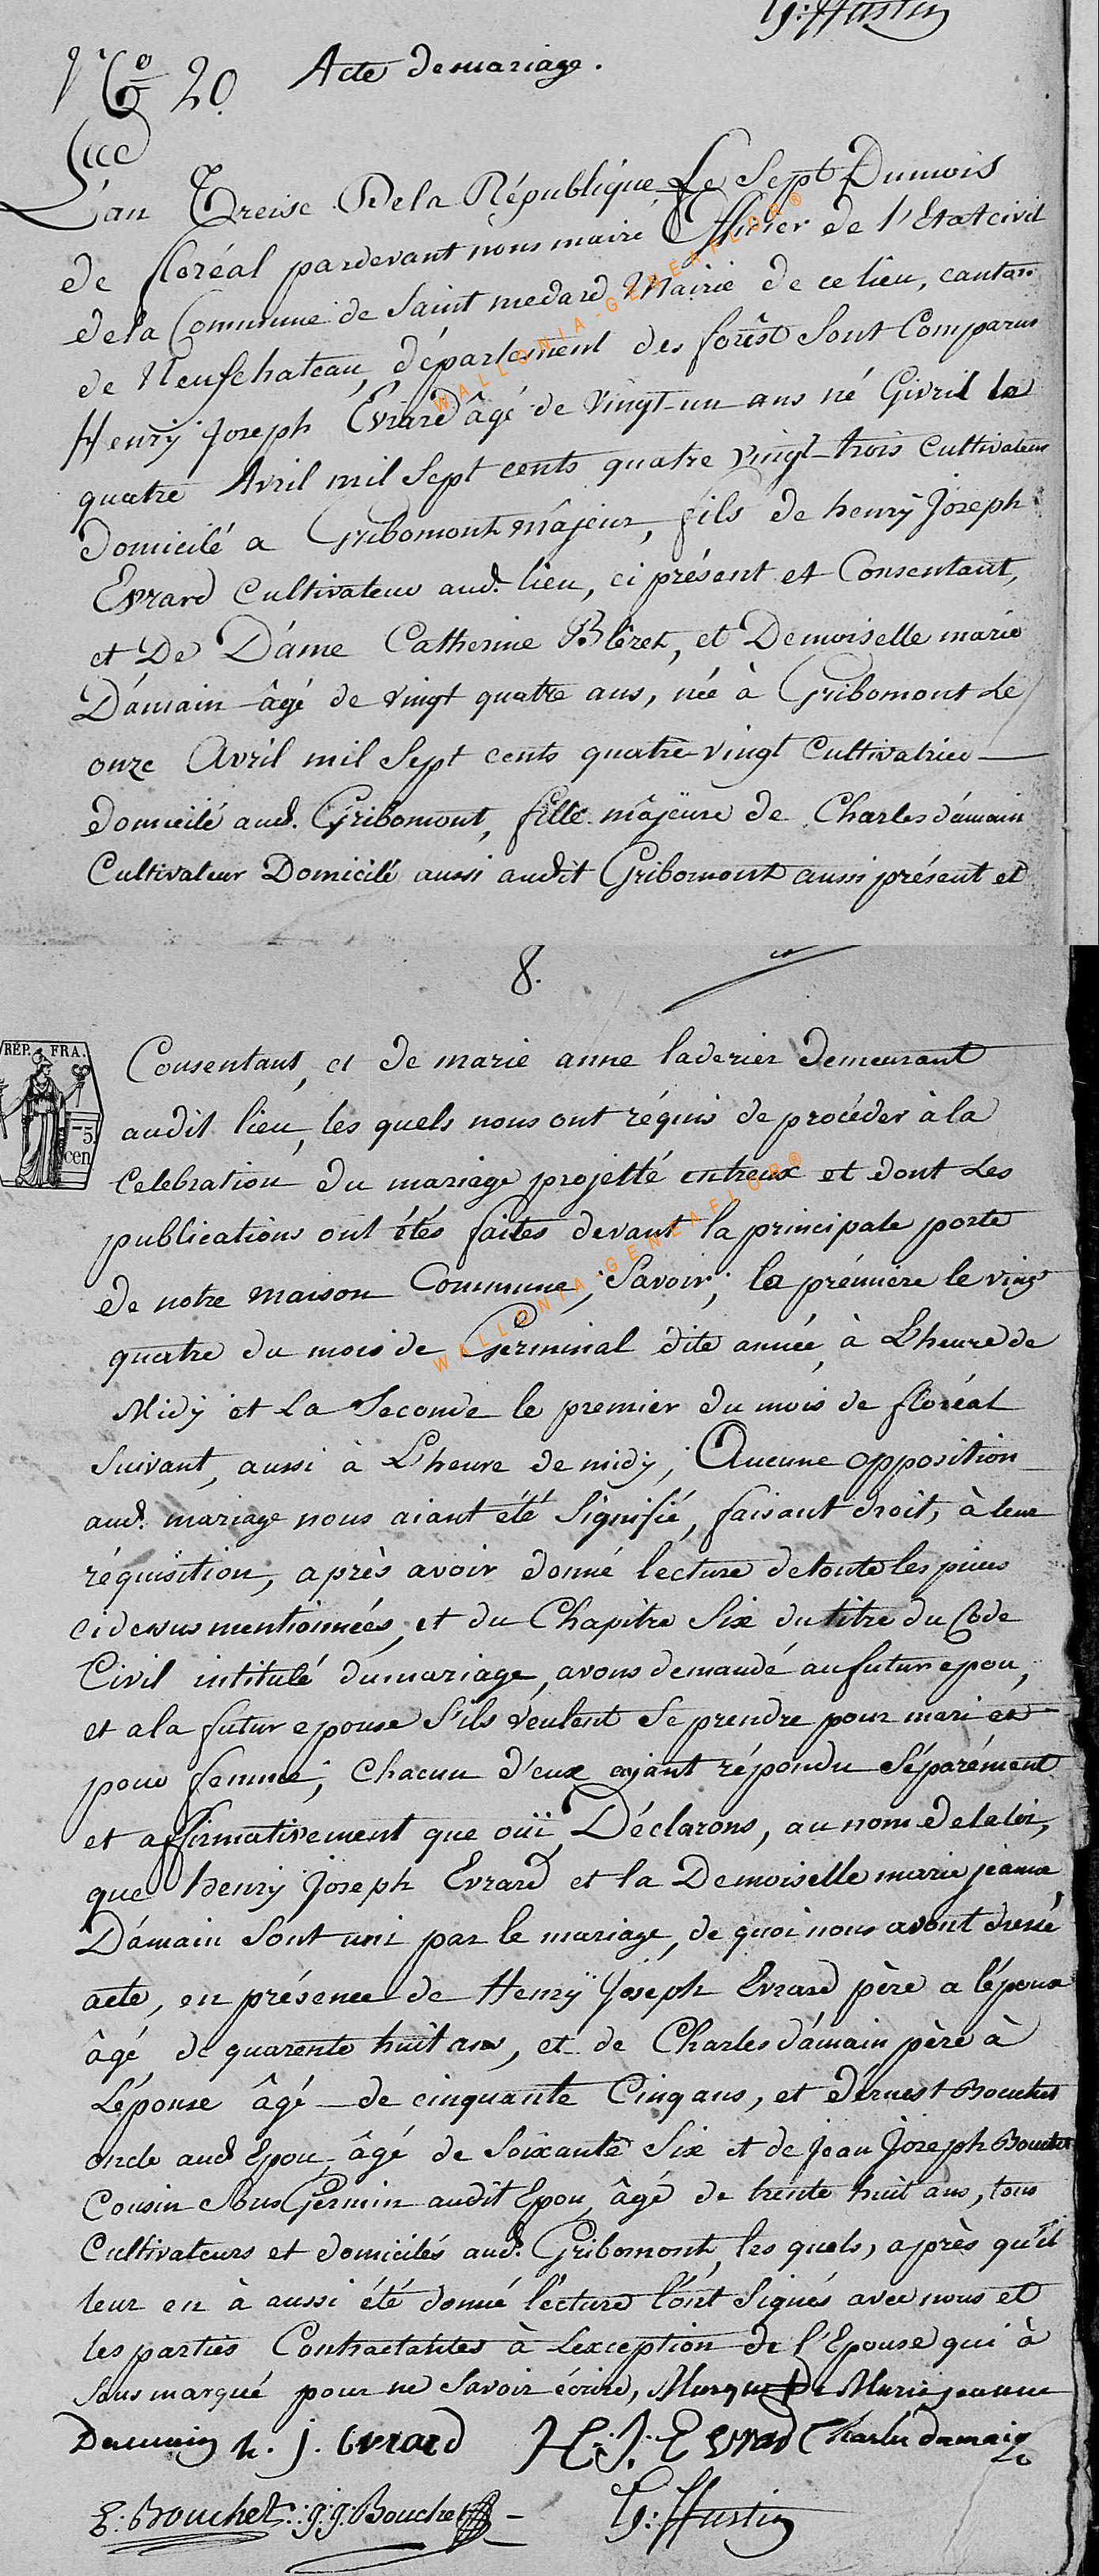 G: Hustin
N° 20. Acte de mariage.
L'an Treise De la République, Le Sept Du mois
de floréal pardevant nous maire Officier de l'Etat civil
de la Commune de Saint medard Mairie de ce lieu, canton
de Neufchateau, département des forêst Sont Comparus
Henrÿ Joseph Evrard âgé de Vingt-un ans né Givril le
quatre Avril mil Sept cents quatre vingt-trois Cultivateur
Domicilé a Gribomont mâjeur, fils de henrÿ Joseph
Evrard Cultivateur aud. lieu, ci présent et Consentant,
et De Dáme Catherine Bléret, et Demoiselle marie
Dámain âgé de vingt quatre ans, née à Gribomont Le
onze Avril mil Sept cents quatre vingt Cultivatrice
domicilé aud. Gribomont, fille mâjeure de Charles dámain
Cultivateur Domicilé aussi audit Gribomont aussi présent et
8.
RÉP. FRA.
5.
cen
Consentant, et de marie anne laderier demeurant
audit lieu, les quels nous ont réquis de procéder à la
Celebration du mariage projetté entreux et dont Les
publications ont étés faites devant la principale porte
de notre maison Commune; Savoir; la prémière le vingt
quatre du mois de Germinal dite année, à L'heure de
Midÿ et La Seconde le premier du mois de floréal
Suivant, aussi à L'heure de midÿ; Aucune opposition
aud. mariage nous aiant été Signifié, faisant droit, à leur
réquisition, après avoir donné lecture de toute les pieces
cidesus mentionnées, et du Chapitre Six du titre du Code
Civil intitulé du mariage, avons demandé au futur epou,
et a la futur epouse S'ils véulent Se prendre pour mari et
pour femme; Chacun d'eux ajant répondu Séparément
et affirmativement que oüi, Déclarons, au nom de la loi,
que henrÿ Joseph Evrard et la Demoiselle marie jeanne
Dámain Sont uni par le mariage, de quoi nous avont dressé
acte, en présence de Henrÿ Joseph Evrard père a lépoux
âgé de quarente huit ans, et de Charles dámain père à
Lépouse âgé de cinquante Cinq ans, et dérnest Bouchet
oncle aud Epou, âgé de Soixante Six et de Jean Joseph Bouchet
Cousin Sous Germin audit Epou, âgé de trente huit ans, tous
Cultivateurs et domicilés aud. Gribomont, les quels, après qu'il
leur en à aussi été donné lécture l'ont Signés avec nous et
les parties Contractantes à Lexception de l'Epouse qui à
Sous marqué pour ne Savoir écrire, Marque + De Marie jeanne
Damain h. j. Evrard H. J. Evrard Charles damain
E: Bouchet: j: j: Bouchet G: Hustin
WALLONIA-GENEAFLOR®
WALLONIA-GENEAFLOR®